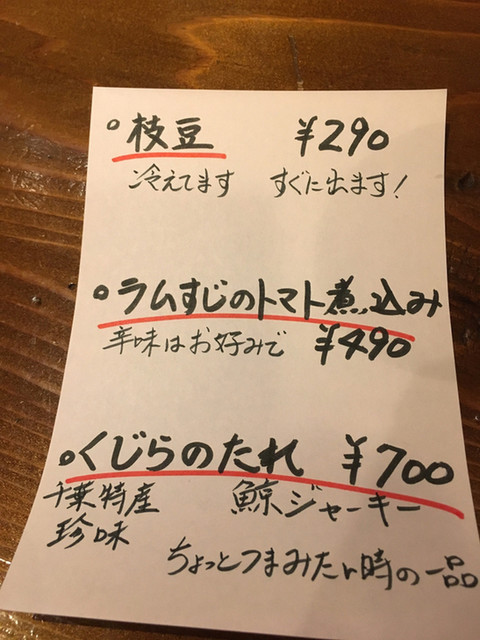 枝豆 ¥290
冷えてます すぐに出ます!
ラムすじのトマト煮込み
辛味はお好みで ¥490
くじらのたれ ¥700
千葉特産 鯨ジャーキー
珍味
ちょっとつまみたい時の一品